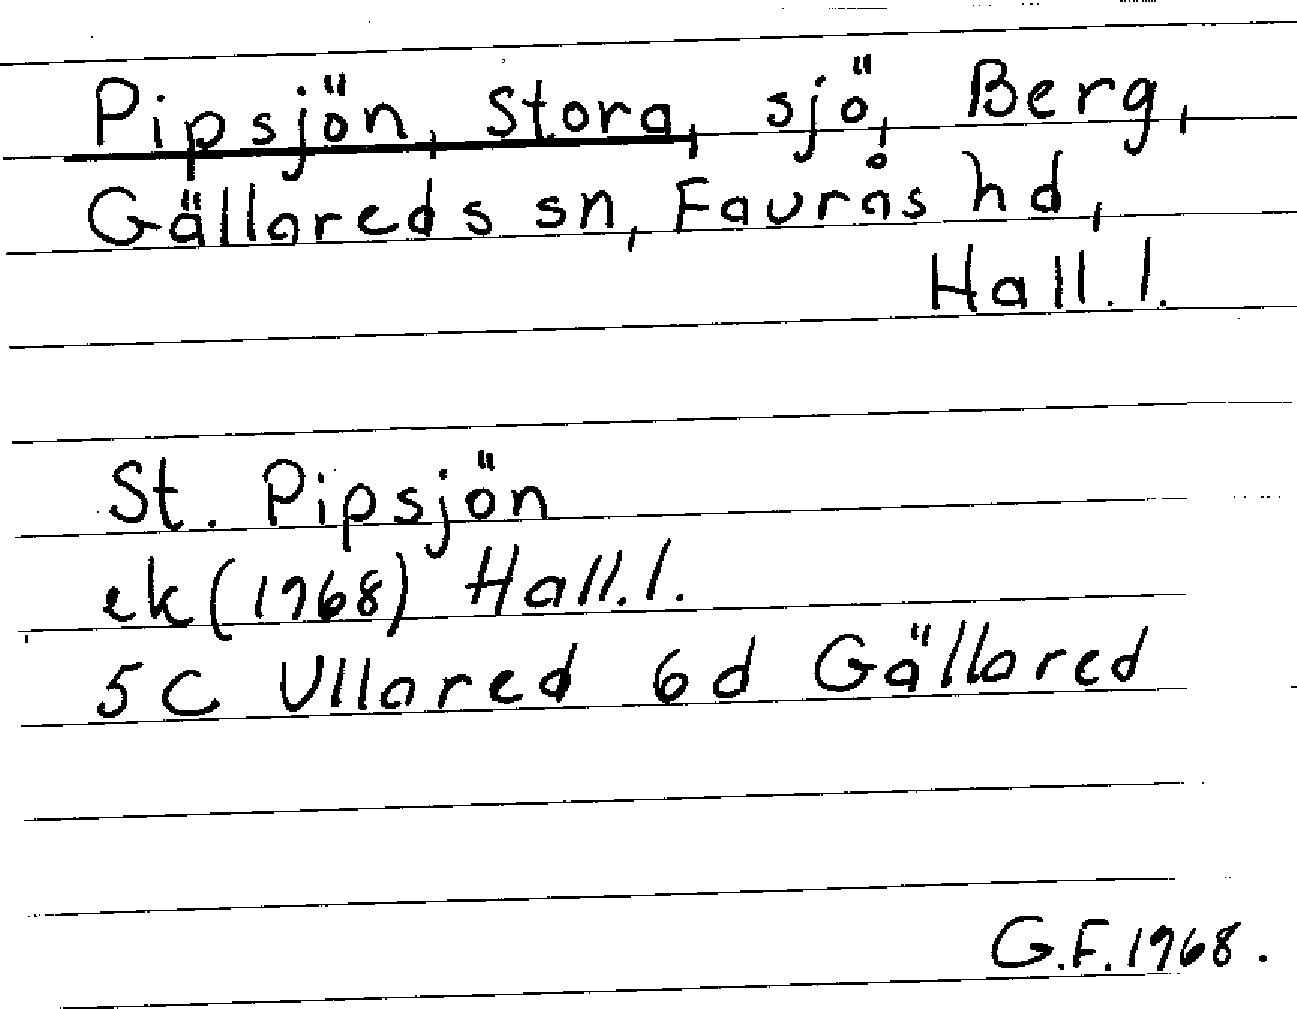 Pipsjön, Stora, sjö, Berg,
Gällareds sn, Faurås hd,
Hall. l.
St. Pipsjön
ek (1968) Hall. l.
5C Ullared 6d Gällared
G.F. 1968.